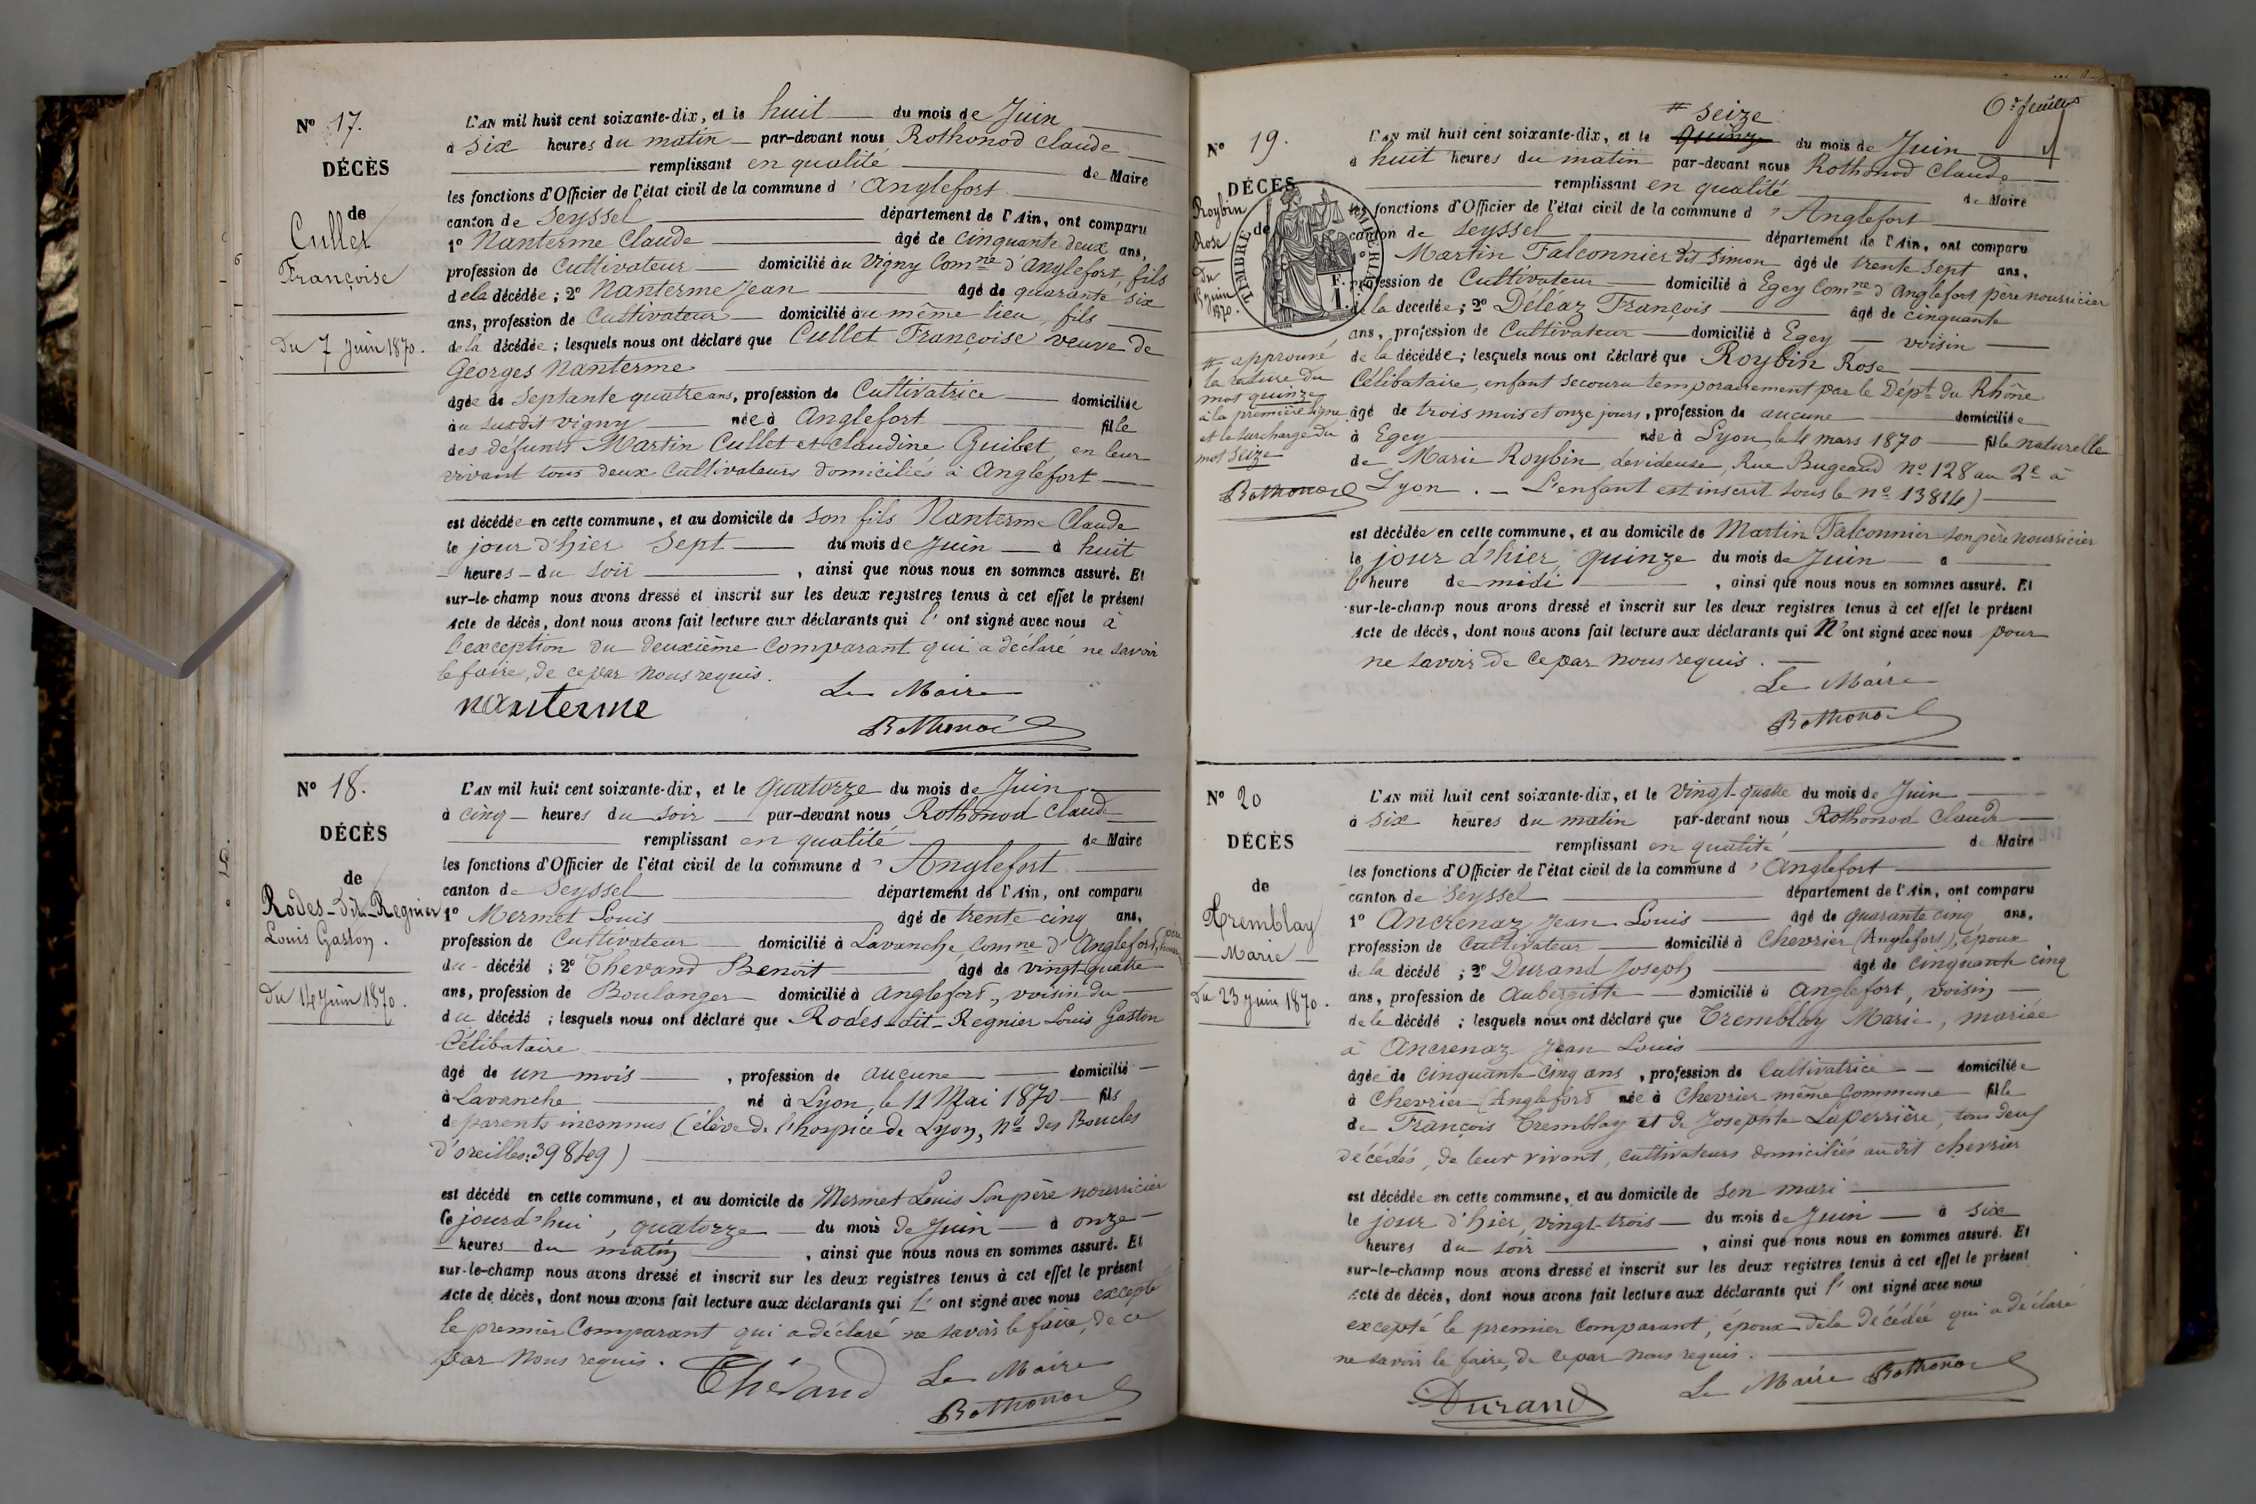 Nº 17.
DÉCÈS
de
Cullet
Françoise
du 7 Juin 1870.
L'AN mil huit cent soixante-dix, et le huit du mois de Juin
à six heures du matin par-devant nous Rothonod Claude
remplissant en qualité de Maire
les fonctions d'Officier de l'état civil de la commune d'Anglefort
canton de Seyssel département de l'Ain, ont comparu
1º Nanterme Claude âgé de cinquante deux ans,
profession de Cultivateur domicilié au Vigny Comne d'Anglefort, fils
de la décédée ; 2º Nanterme Jean âgé de quarante six
ans, profession de Cultivateur domicilié au même lieu, fils
de la décédée ; lesquels nous ont déclaré que Cullet Françoise veuve de
Georges Nanterme
âgée de septante quatre ans, profession de Cultivatrice domiciliée
au susdit Vigny née à Anglefort fille
des défunts Martin Cullet et Claudine Guibet, en leur
vivant tous deux Cultivateurs domiciliés à Anglefort
est décédée en cette commune, et au domicile de son fils Nanterme Claude
le jour d'hier sept du mois de Juin à huit
heures du soir, ainsi que nous nous en sommes assuré. Et
sur-le-champ nous avons dressé et inscrit sur les deux registres tenus à cet effet le présent
Acte de décès, dont nous avons fait lecture aux déclarants qui l'ont signé avec nous à
l'exception du deuxième Comparant qui a déclaré ne savoir
le faire, de ce par nous requis.
Le Maire
nanterme
Rothonod
Nº 18.
DÉCÈS
de
Rodes-dit-Regnier
Louis Gaston.
du 14 Juin 1870.
L'AN mil huit cent soixante-dix, et le quatorze du mois de Juin
à cinq heures du soir par-devant nous Rothonod Claude
remplissant en qualité de Maire
les fonctions d'Officier de l'état civil de la commune d'Anglefort
canton de Seyssel département de l'Ain, ont comparu
1º Mermet Louis âgé de trente cinq ans,
profession de Cultivateur domicilié à Lavanche, Comne d'Anglefort, père
du décédé ; 2º Thevand Benoit âgé de vingt-quatre
ans, profession de Boulanger domicilié à Anglefort, voisin du
du décédé ; lesquels nous ont déclaré que Rodes-dit-Regnier Louis Gaston
Célibataire
âgé de un mois, profession de aucune domicilié
à Lavanche né à Lyon, le 11 Mai 1870 fils
de parents inconnus (élève de l'hospice de Lyon, Nº des Boucles
d'oreilles: 39849)
est décédé en cette commune, et au domicile de Mermet Louis son père nourricier
le jourd'hui, quatorze du mois de Juin à onze
heures du matin, ainsi que nous nous en sommes assuré. Et
sur-le-champ nous avons dressé et inscrit sur les deux registres tenus à cet effet le présent
Acte de décès, dont nous avons fait lecture aux déclarants qui l'ont signé avec nous excepté
le premier Comparant qui a déclaré ne savoir le faire, de ce
par nous requis.
Thévand
Le Maire
Rothonod
6e feuillet
Nº 19.
DÉCÈS
de
Roybin
Rose
du
15 juin
1870.
TIMBRE IMPÉRIAL
F.
1.
# seize
L'AN mil huit cent soixante-dix, et le quinze du mois de Juin
à huit heures du matin par-devant nous Rothonod Claude
remplissant en qualité de Maire
les fonctions d'Officier de l'état civil de la commune d'Anglefort
canton de Seyssel département de l'Ain, ont comparu
1º Martin Falconnier dit Simon âgé de trente sept ans,
profession de Cultivateur domicilié à Egey Comne d'Anglefort père nourricier
de la décédée ; 2º Deléaz François âgé de cinquante
ans, profession de Cultivateur domicilié à Egey voisin
de la décédée ; lesquels nous ont déclaré que Roybin Rose
Célibataire, enfant secouru temporairement par le Dépt du Rhône
âgé de trois mois et onze jours, profession de aucune domiciliée
à Egey née à Lyon, le 4 mars 1870 fille naturelle
de Marie Roybin, dévideuse, Rue Bugeaud nº 128 au 2e à
Lyon. - L'enfant est inscrit sous le nº 13814)
# approuvé
la rature du
mot quinze
à la première ligne
et la surcharge du
mot seize
Rothonod
est décédée en cette commune, et au domicile de Martin Falconnier son père nourricier
le jour d'hier, quinze du mois de Juin à
l'heure de midi, ainsi que nous nous en sommes assuré. Et
sur-le-champ nous avons dressé et inscrit sur les deux registres tenus à cet effet le présent
Acte de décès, dont nous avons fait lecture aux déclarants qui n'ont signé avec nous pour
ne savoir, de ce par nous requis.
Le Maire
Rothonod
Nº 20
DÉCÈS
de
Tremblay
Marie
du 23 juin 1870.
L'AN mil huit cent soixante-dix, et le vingt-quatre du mois de Juin
à six heures du matin par-devant nous Rothonod Claude
remplissant en qualité de Maire
les fonctions d'Officier de l'état civil de la commune d'Anglefort
canton de Seyssel département de l'Ain, ont comparu
1º Ancrenaz Jean Louis âgé de quarante cinq ans,
profession de Cultivateur domicilié à Chevrier (Anglefort), époux
de la décédé ; 2º Durand Joseph âgé de cinquante cinq
ans, profession de Aubergiste domicilié à Anglefort, voisin
de la décédé ; lesquels nous ont déclaré que Tremblay Marie, mariée
à Ancrenaz Jean Louis
âgée de cinquante-cinq ans, profession de Cultivatrice domiciliée
à Chevrier (Anglefort née à Chevrier même Commune fille
de François Tremblay et de Josephte Laperrière, tous deux
décédés, de leur vivant, cultivateurs domiciliés audit chevrier
est décédée en cette commune, et au domicile de son mari
le jour d'hier, vingt-trois du mois de Juin à six
heures du soir, ainsi que nous nous en sommes assuré. Et
sur-le-champ nous avons dressé et inscrit sur les deux registres tenus à cet effet le présent
Acte de décès, dont nous avons fait lecture aux déclarants qui l'ont signé avec nous
excepté le premier Comparant, époux de la décédée qui a déclaré
ne savoir le faire, de ce par nous requis.
Durand
Le Maire Rothonod